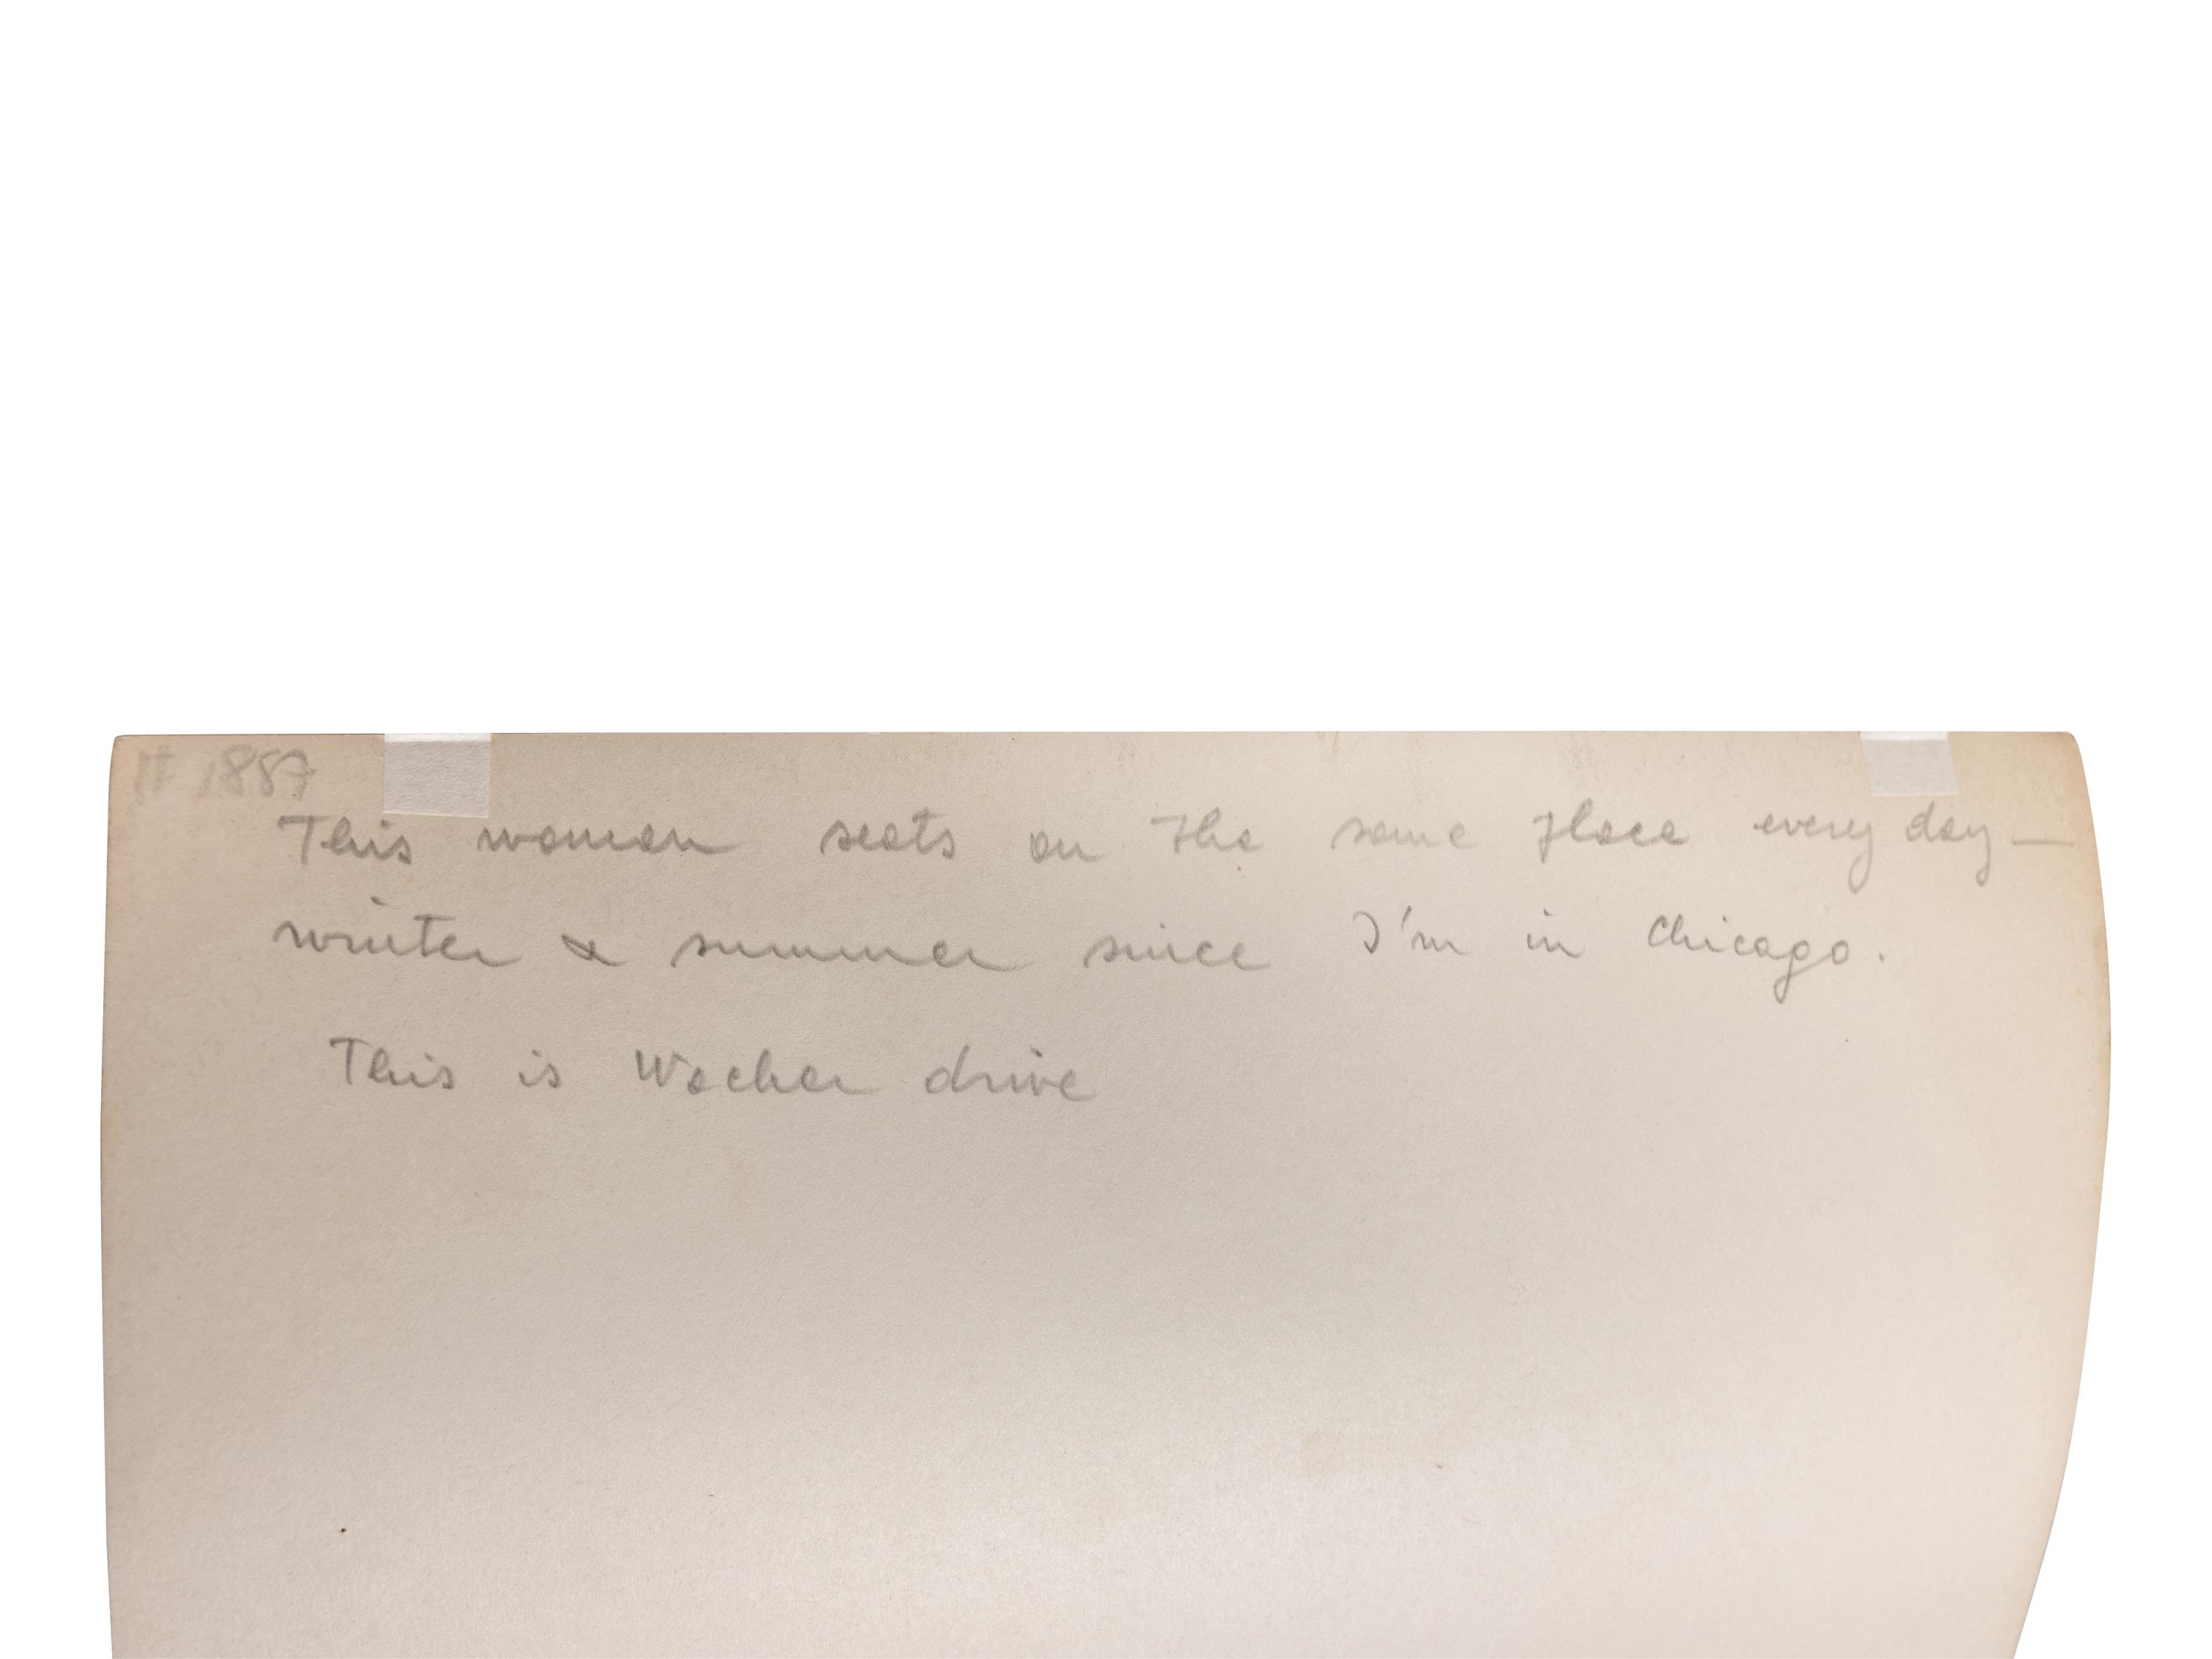 # 1857
This woman seats on the same place every day —
winter & summer since I'm in Chicago.
This is Wacker drive